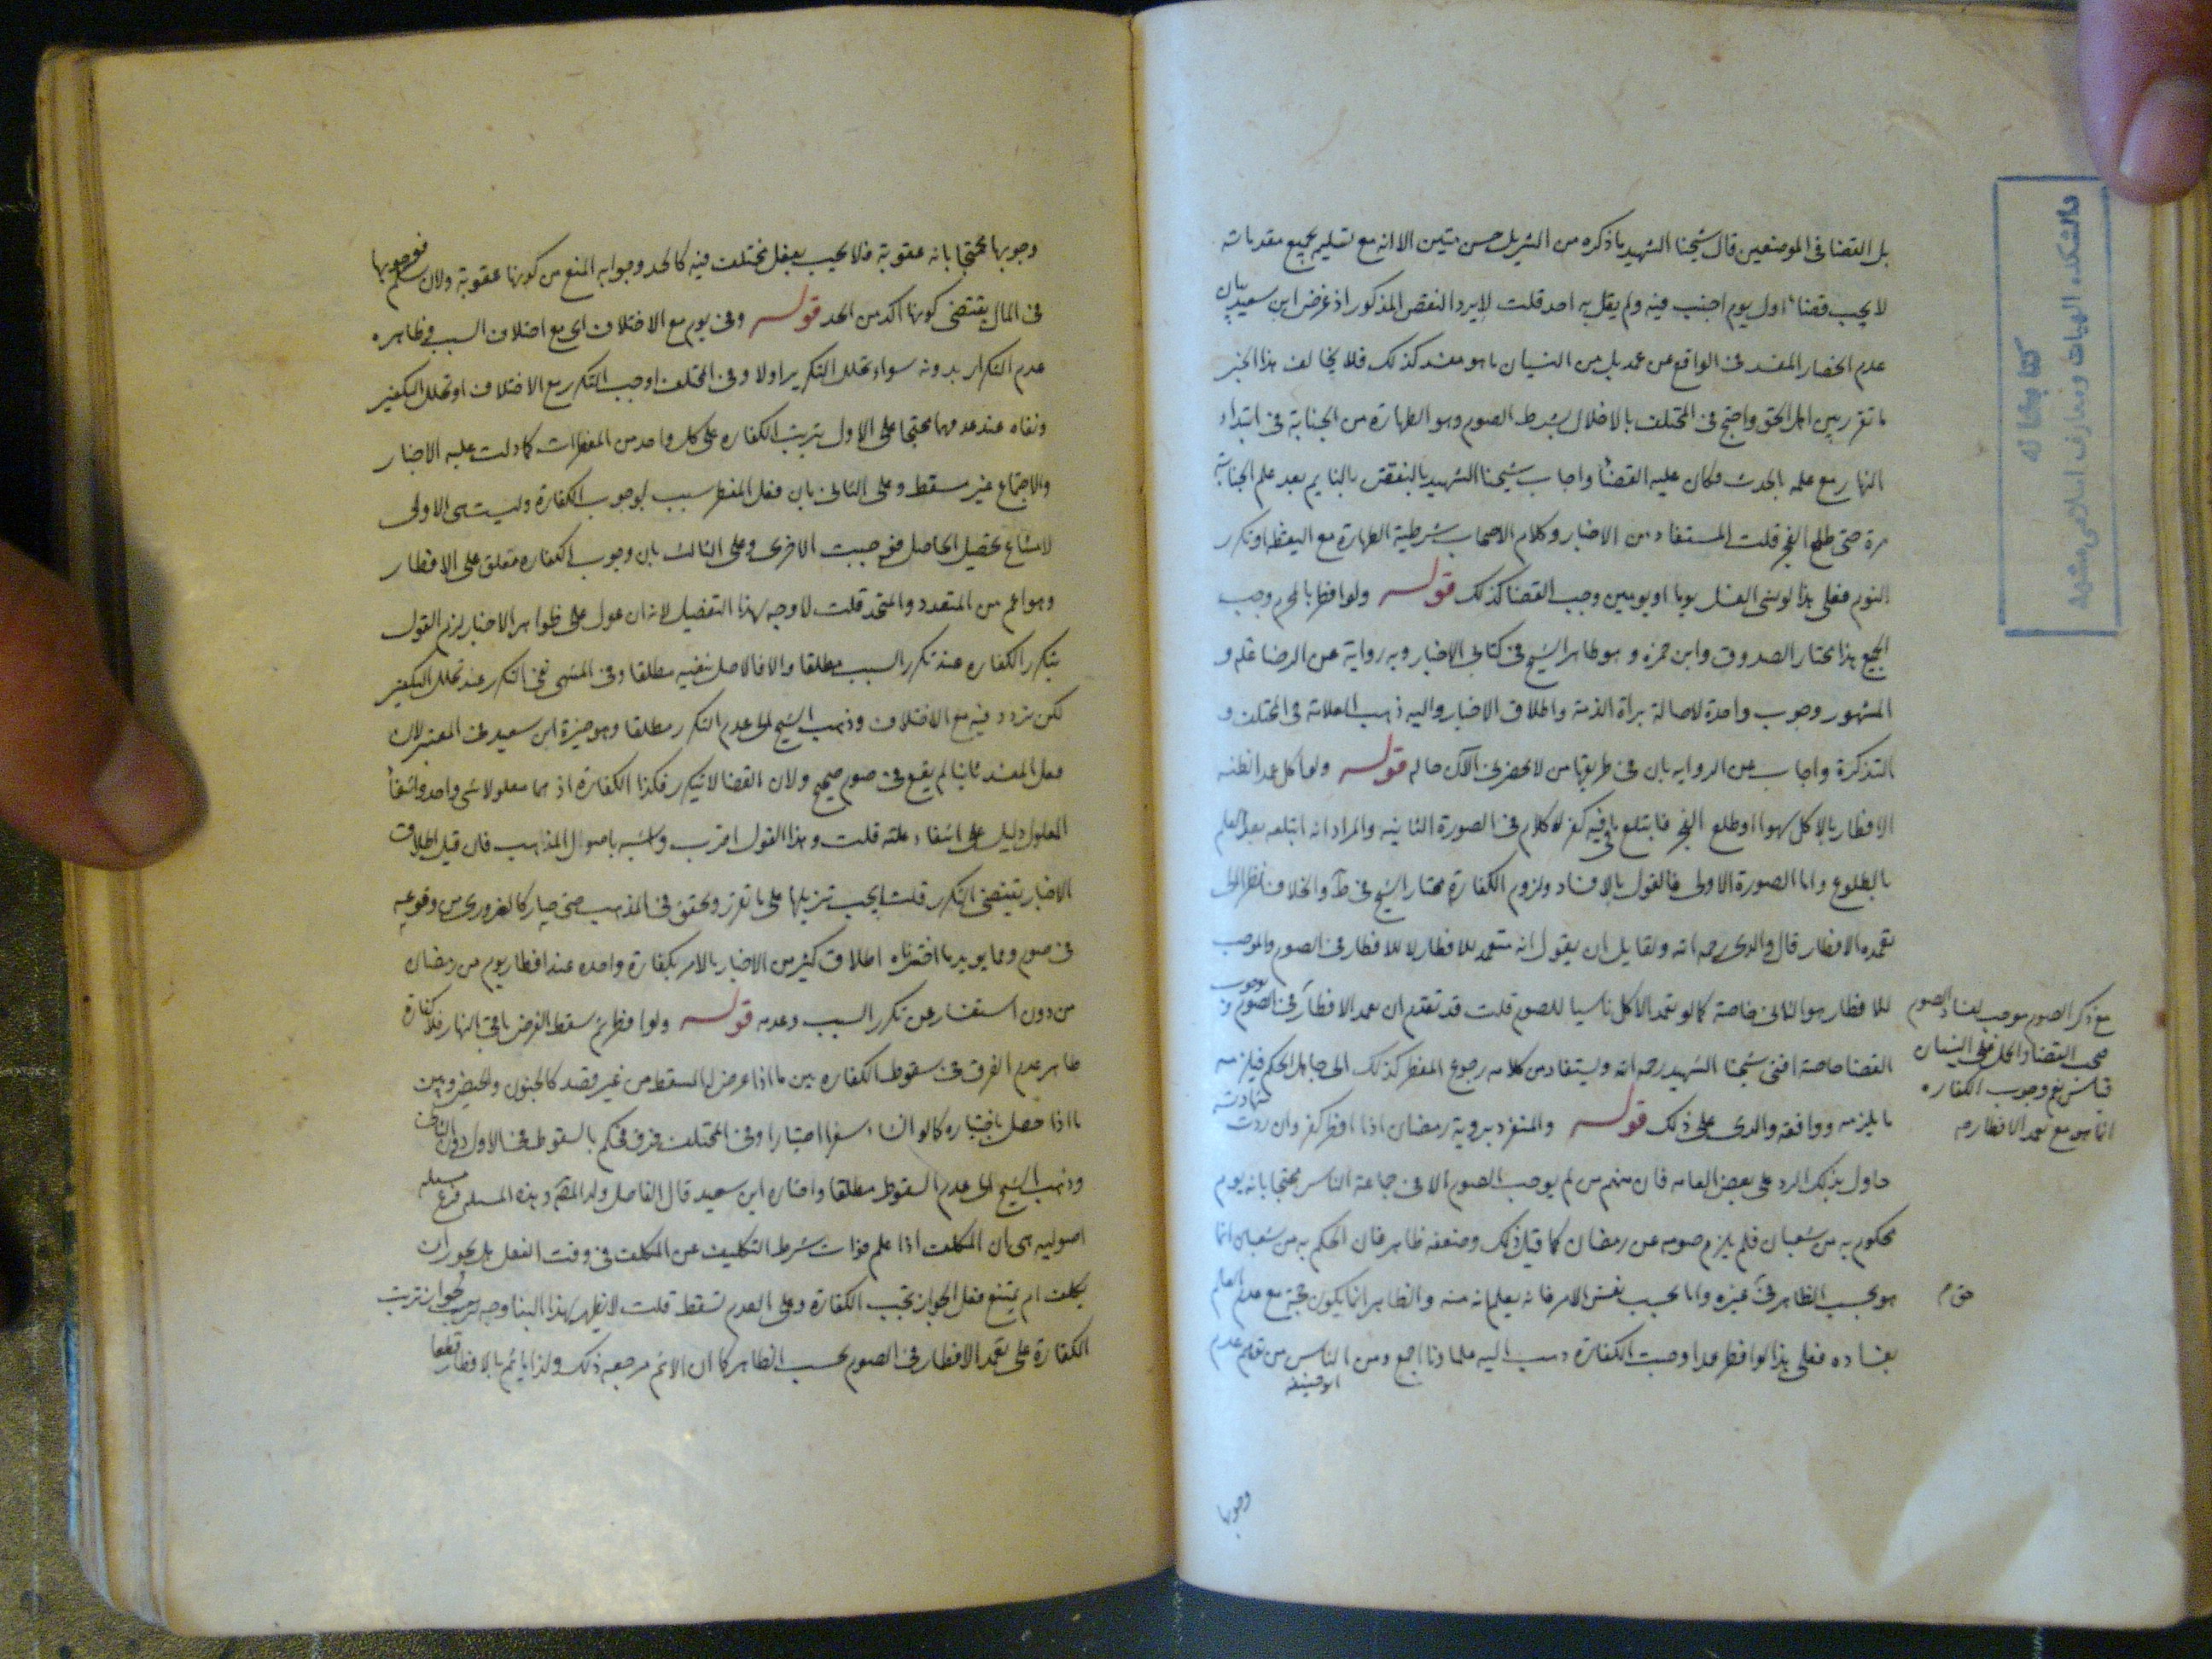 بل القضا فى الموضعين قال شيخنا الشهيد ما ذكره من التنزيل حسن متين الا انه مع تسليم جميع مقدماته
لا يجب قضاء اول يوم اجنب فيه ولم يقل به احد قلت لا يرد النقض المذكور اذ غرض ابن سعيد بيان
عدم انحصار المفسد فى الواقع عن عمد بل من النسيان ما هو مفسد كذلك فلا يخالف هذا الخبر
ما تقرر بين اهل الحق واحتج فى المختلف بالاخلال بشرط الصوم وهو الطهارة من الجنابة فى ابتداء
النهار مع علمه بالحدث فكان عليه القضاء واجاب شيخنا الشهيد بالنقض بالنايم بعد علم الجنابة
مرة حتى طلع الفجر قلت المستفاد من الاخبار وكلام الاصحاب شرطية الطهارة مع اليقظة او تكرر
النوم فعلى هذا لو نسى الغسل يوما او يومين وجب القضا كذلك قوله ولو افطر بالمحرم وجب
الجميع هذا مختار الصدوق وابن حمزه وهو ظاهر الشيخ فى كتابى الاخبار وبه رواية عن الرضا علم و
المشهور وجوب واحدة لاصالة براة الذمة واطلاق الاخبار واليه ذهب العلامة فى المختلف و
التذكرة واجاب عن الروايه بان فى طريقها من لا يحضرنى الآن حاله قوله ولو اكل عمدا لظنه
الافطار بالاكل سهوا او طلع الفجر فابتلع ما فى فيه كفر لا كلام فى الصورة الثانيه والمراد انه ابتلعه بعد العلم
بالطلوع واما الصورة الاولى فالقول بالافساد ولزوم الكفارة مختار الشيخ فى ط والخلاف نظرا الى
تعمده الافطار قال والدى رحمه الله ولقايل ان يقول انه متعمد للافطار لا للافطار فى الصوم والموجب
للافطار هو الثانى خاصة كما لو تعمد الاكل ناسيا للصوم قلت قد تقدم ان تعمد الافطار فى الصوم و
يوجب
القضا خاصة افتى شيخنا الشهيد رحمه الله ويستفاد من كلامه رجوع المفطر كذلك الى جاهل الحكم فيلزمه
ما يلزمه ووافقه والدى على ذلك قوله والمنفرد بروية رمضان اذا افطر كفر وان ردت
شهادته
حاول بذلك الرد على بعض العامه فان منهم من لم يوجب الصوم الا فى جماعة الناس محتجا بانه يوم
محكوم به من شعبان فلم يلزم صومه عن رمضان كما قبل ذلك وضعفه ظاهر فان الحكم به من شعبان انما
هو بحسب الظاهر فى غيره واما بحسب نفس الامر فانه يعلم انه منه والظاهر انما يكون حجة مع عدم العلم
بفساده فعلى هذا لو افطر عمدا وجبت الكفارة ذهب اليه علماونا اجمع ومن الناس من نقل عدم
ابو حنيفه
وجوبها
مع ذكر الصوم موجب لفساد الصوم
انما هو مع تعمد الافطار
كتابخانه
دانشكده الهيات ومعارف اسلامى مشهد
وجوبها محتجا بانه عقوبة فلا يجب بفعل مختلف فيه كالحد وجوابه المنع من كونها عقوبة ولان سلم فوجوبها
فى المال يقتضى كونها اكد من الحد قوله وفى يوم مع الاختلاف اى مع اختلاف السبب وظاهره
عدم التكرار بدونه سواء تخلل التكفير اولا وفى المختلف اوجب التكرر مع الاختلاف او تخلل التكفير
ونفاه عند عدمهما محتجا على الاول بترتب الكفاره على كل واحد من المفطرات كما دلت عليه الاخبار
والاجتماع غير مسقط وعلى الثانى بان فعل المفطر سبب لوجوب الكفارة وليست هى الاولى
لامتناع تحصيل الحاصل فوجبت الاخرى وعلى الثالث بان وجوب الكفاره متعلق على الافطار
وهو اعم من المتعدد والمتحد قلت لا وجه لهذا التفصيل لانه ان عول على ظواهر الاخبار لزم القول
بتكرر الكفاره عند تكرر السبب مطلقا والا فالاصل ينفيه مطلقا وفى المنتهى نفى التكرر عند تخلل التكفير
لكن تردد فيه مع الاختلاف وذهب الشيخ الى عدم التكرر مطلقا وهو خيرة ابن سعيد فى المعتبر لان
فعل المفسد ثانيا لم يقع فى صوم صحيح ولان القضا لا يتكرر فكذا الكفارة اذ هما معلولا شى واحد وانتفاء
المعلول دليل على انتفاء علته قلت وهذا القول اقرب وانسب باصول المذهب فان قيل اطلاق
الاخبار يقتضى التكرر قلت يجب تنزيلها على ما تقرر وتحقق فى المذهب حتى صار كالضرورى من وقوعه
فى صوم ومما يويد ما اخترناه اطلاق كثير من الاخبار بالامر بكفارة واحده عند افطار يوم من رمضان
من دون استفسار عن تكرر السبب وعدمه قوله ولو افطر ثم سقط الفرض باقى النهار فلا كفارة
ظاهر عدم الفرق فى سقوط الكفاره بين ما اذا عرض له المسقط من غير قصد كالجنون والحيض وبين
ما اذا حصل باختياره كما لو انشاء سفرا اختيارا وفى المختلف فرق فحكم بالسقوط فى الاول دون الثانى
وذهب الشيخ الى عدم السقوط مطلقا واختاره ابن سعيد قال الفاضل ولد المص وهذه المسله فرع مسله
اصوليه هى ان المكلف اذا علم فوات شرط التكليف عن المكلف فى وقت الفعل هل يجوز ان
يكلف ام يمتنع فعلى الجواز تجب الكفارة وعلى العدم تسقط قلت لا يظهر لهذا البنا وجه لجواز ترتب
الكفارة على تعمد الافطار فى الصوم بحسب الظاهر كما ان الاثم مرجعه ذلك ولذا ياثم بالافطار قطعا